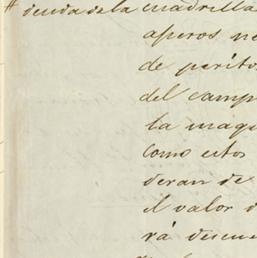 # deuda de la cuadrilla
aperos ne
de perito
del camp
la maqu
como estos
deran de
el valor d
rá descue